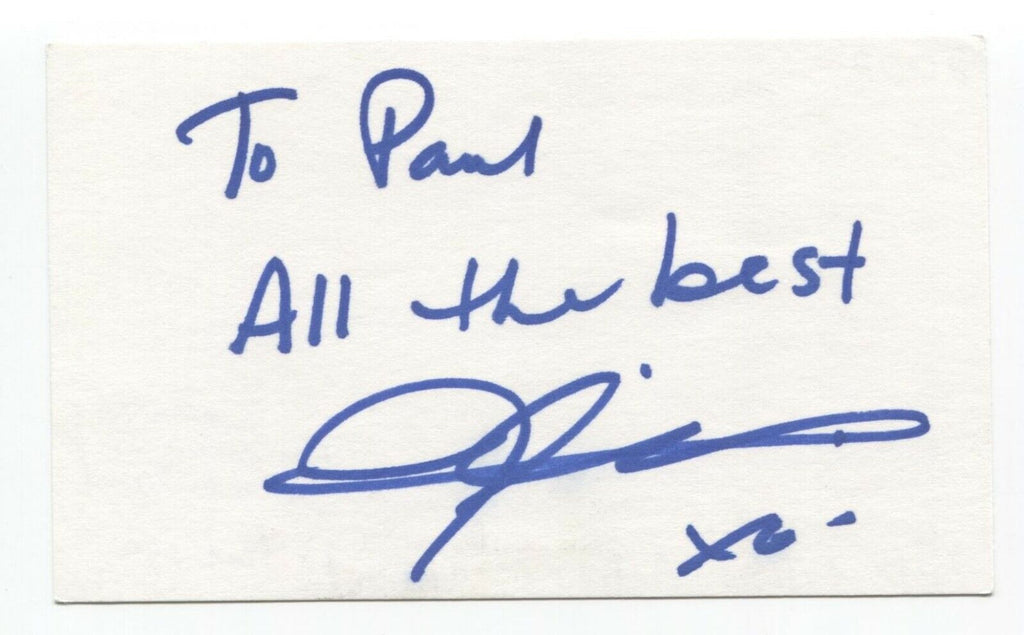 To Paul
All the best
xo-